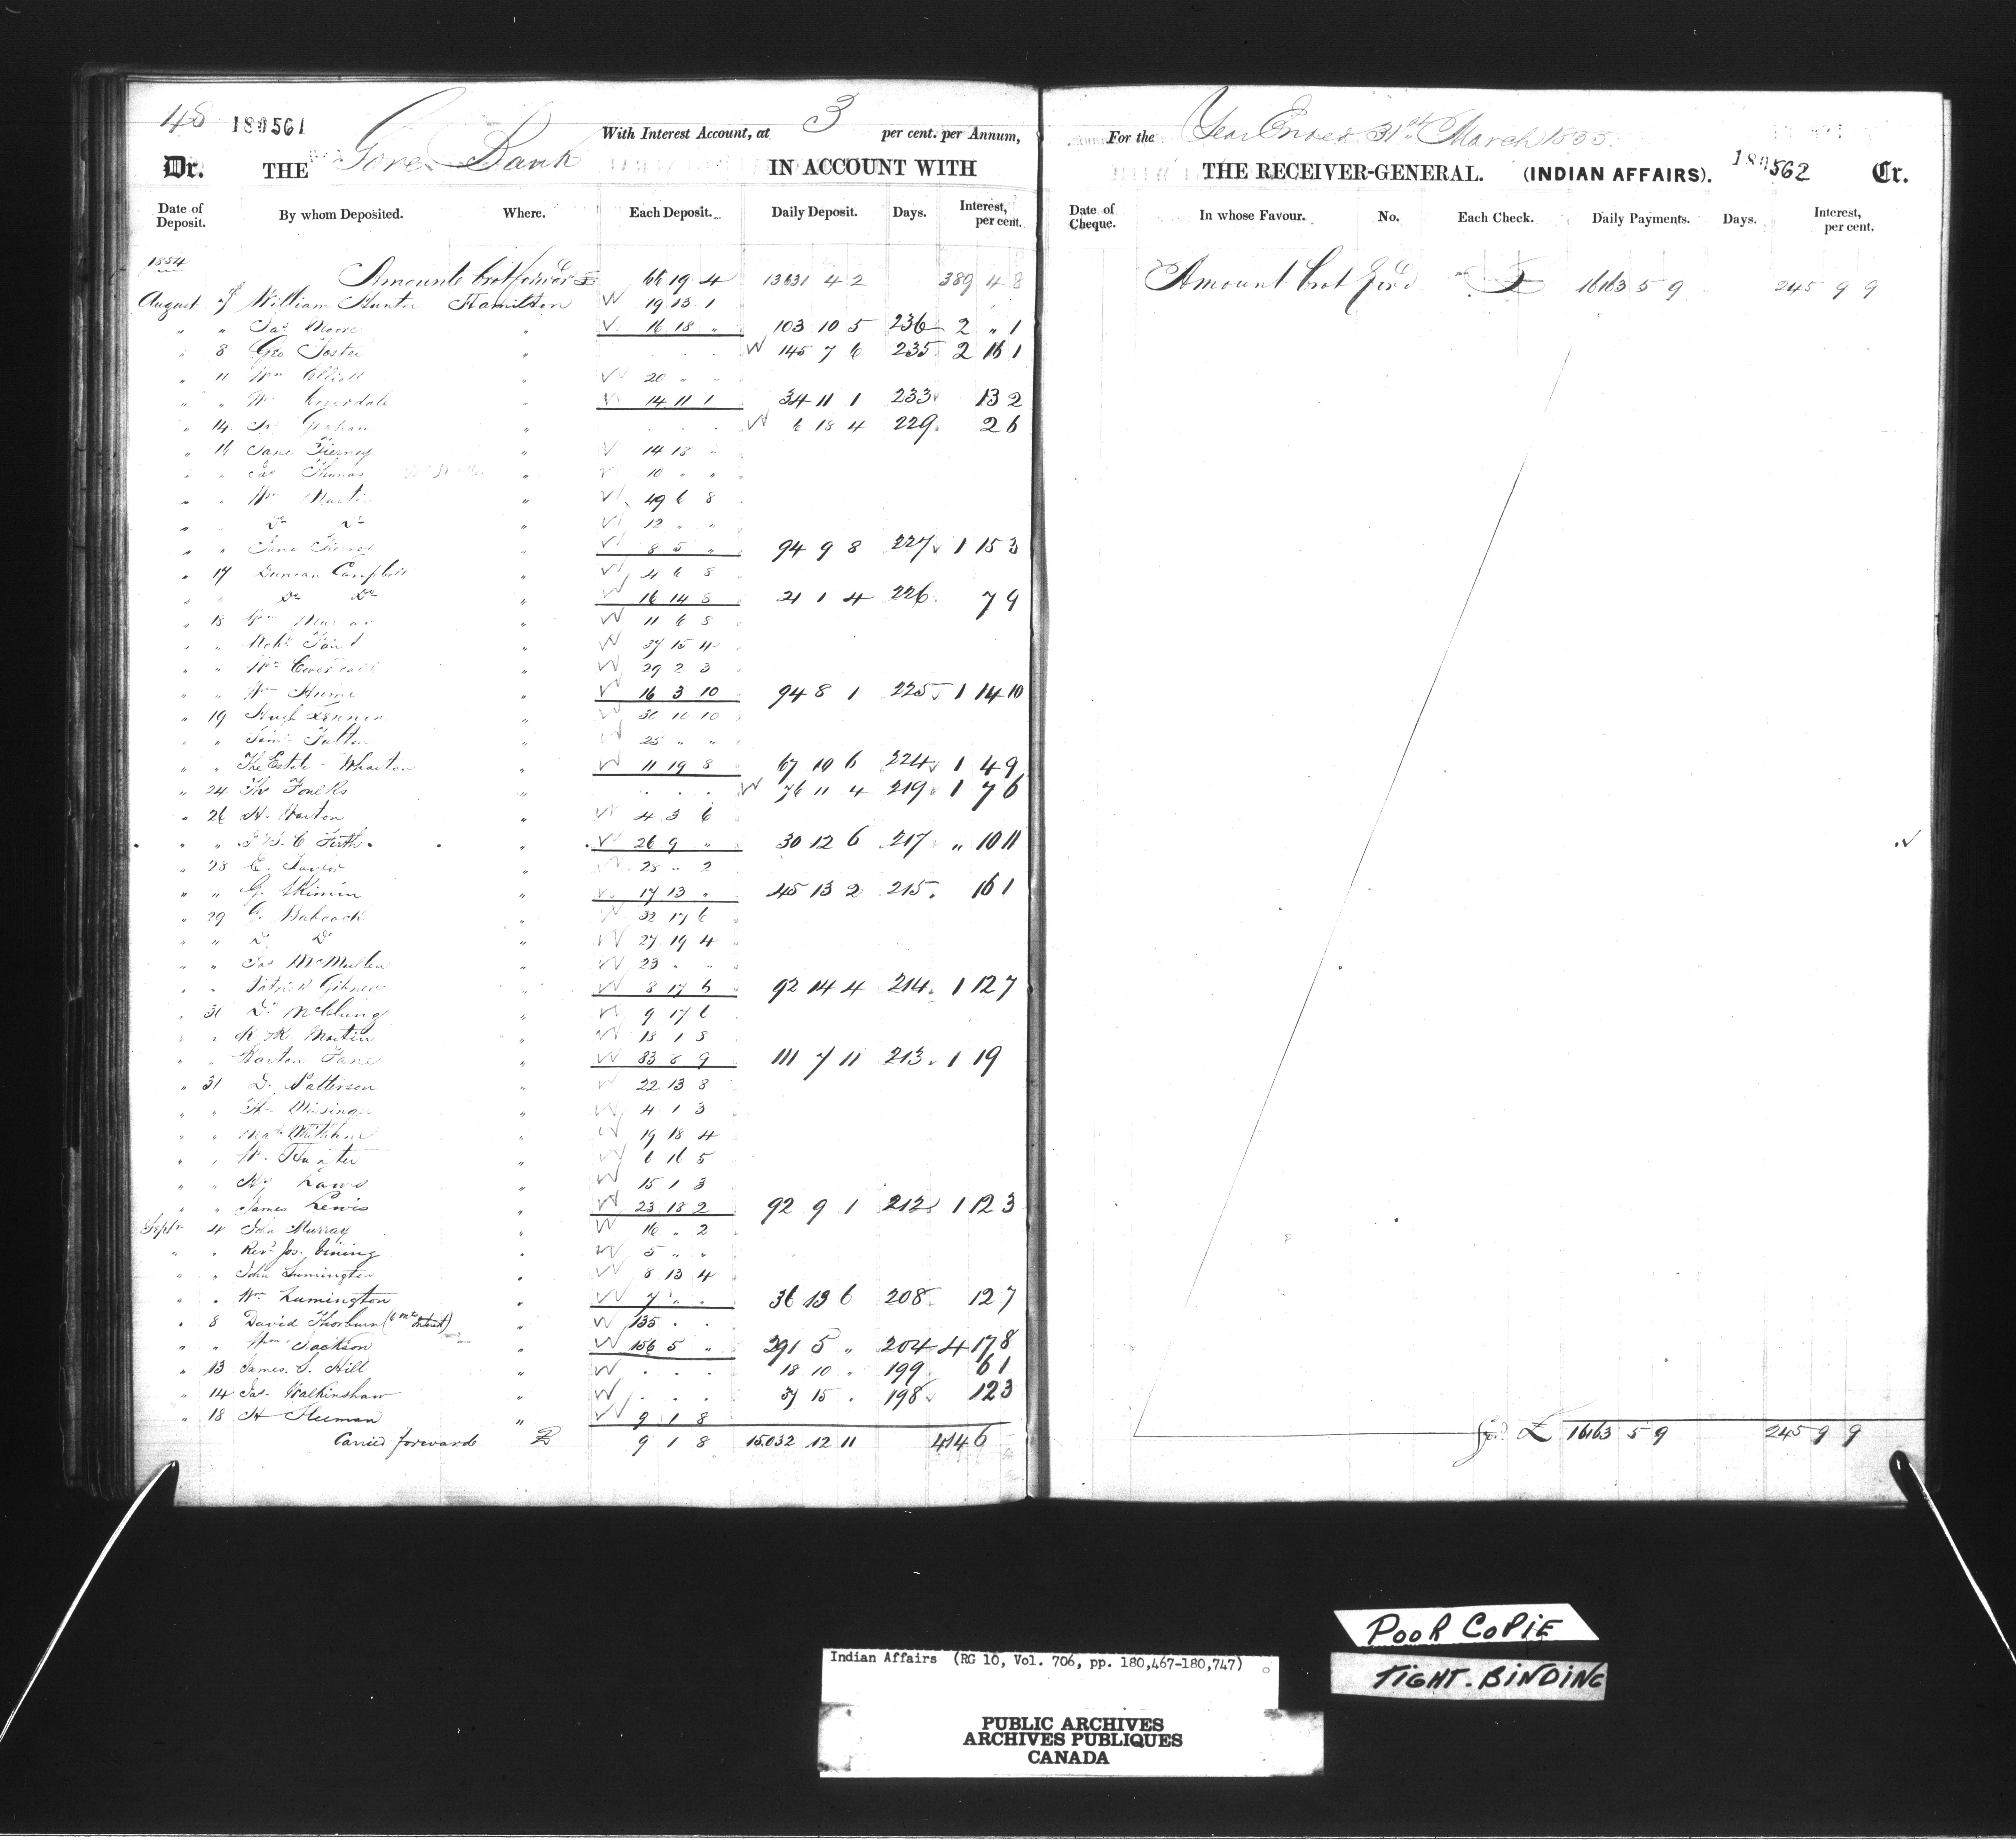 48 180561 Gore Bank With Interest Account, at 3 per cent. per Annum,
Dr. THE IN ACCOUNT WITH
Date of Deposit. By whom Deposited. Where. Each Deposit. Daily Deposit. Days. Interest, per cent.
1854
Amounts brot forward £ 66 19 4 13631 4 2 389 4 8
August 7 William Hunter Hamilton 19 13 1
" " Jas Moore " 16 18 " 103 10 5 236 2 " 1
" 8 Geo Foster " 145 7 6 235 2 16 1
" 11 Wm Elliott " 20 " "
" " Wm Coverdale " 14 11 1 34 11 1 233 13 2
" 14 Graham " 6 18 4 229 2 6
" 16 Jane Tierney " 14 18 "
" " Jas Thomas " 10 " "
" " Wm Martin " 49 6 8
" " Do Do " 12 " "
" " Jane Tierney " 8 5 " 94 9 8 227 1 15 3
" 17 Duncan Campbell " 4 6 8
" " Do Do " 16 14 8 21 1 4 226 7 9
" 18 " 11 6 8
" " " 37 15 4
" " Wm Coverdale " 29 2 3
" " Wm Hume " 16 3 10 94 8 1 225 1 14 10
" 19 Hugh Lennon " 30 10 10
" " Saml Fulton " 25 " "
" " The Estate - Wharton " 11 19 8 67 10 6 224 1 4 9
" 24 Tho Foulks " 76 11 4 219 1 7 6
" 26 H. Horton " 4 3 6
" " C Firth " 26 9 " 30 12 6 217 " 10 11
" 28 " 28 " 2
" " G. Skimin " 17 13 " 45 13 2 215 16 1
" 29 G. Babcock " 32 17 6
" " Do Do " 27 19 4
" " Jas McMullen " 23 " "
" " Patrick Gibney " 8 17 6 92 14 4 214 1 12 7
" 31 D. McClung " 9 17 6
" " Martin " 18 1 8
" " Barton Fane " 83 8 9 111 7 11 213 1 19
" 31 D. Patterson " 22 13 8
" " " 4 1 3
" " " 19 18 4
" " W. Hunter " 6 16 5
" " Laws " 15 1 3
" " James Lewis " 23 18 2 92 9 1 212 1 12 3
Septr 4 John Murray " 16 " 2
" " Revd Jos. Cining " 5 " "
" " John Lumington " 8 13 4
" " Wm Lumington " 7 " " 36 13 6 208 12 7
" 8 David Thorburn (6 mos Interest) " 135 " "
" " Wm Jackson " 156 5 " 291 5 " 204 4 17 8
" 13 James. S. Hill " 18 10 " 199 6 1
" 14 Jas. Walkinshaw " 37 15 " 198 12 3
" 18 H Sleeman " 9 1 8
Carried forward £ 9 1 8 15.032 12 11 414 6
For the Year Ended 31st March 1855.
THE RECEIVER-GENERAL. (INDIAN AFFAIRS). 180562 Cr.
Date of Cheque. In whose Favour. No. Each Check. Daily Payments. Days. Interest, per cent.
Amount brot ford £ 16163 5 9 245 9 9
ford £ 16163 5 9 245 9 9
POOR COPiE
TiGHT-BiNDiNG
Indian Affairs (RG 10, Vol. 706, pp. 180,467-180,747)
PUBLIC ARCHIVES
ARCHIVES PUBLIQUES
CANADA